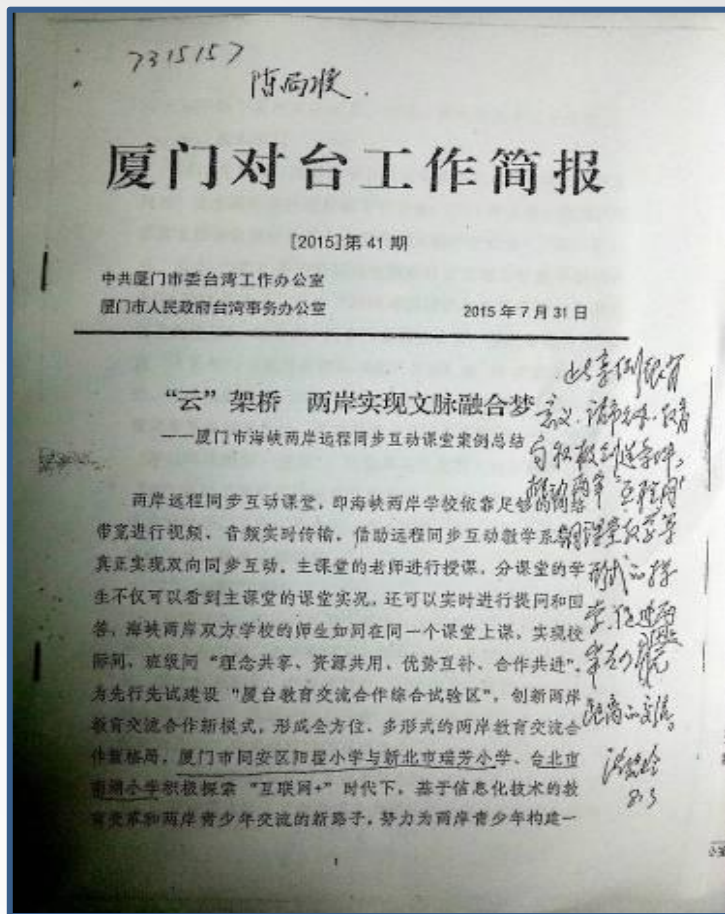 7315157
厦门对台工作简报
[2015]第 41 期
中共厦门市委台湾工作办公室
厦门市人民政府台湾事务办公室
2015 年 7 月 31 日
“云”架桥 两岸实现文脉融合梦
——厦门市海峡两岸远程同步互动课堂案例总结
两岸远程同步互动课堂，即海峡两岸学校依靠足够的网络
带宽进行视频、音频实时传输，借助远程同步互动教学系
真正实现双向同步互动。主课堂的老师进行授课，分课堂的学
生不仅可以看到主课堂的课堂实况，还可以实时进行提问和回
答，海峡两岸双方学校的师生如同在同一个课堂上课，实现校
际间、班级间“理念共享、资源共用、优势互补、合作共进”。
为先行先试建设“厦台教育交流合作综合试验区”，创新两岸
教育交流合作新模式，形成全方位、多形式的两岸教育交流合
作新格局，厦门市同安区阳翟小学与新北市瑞芳小学、台北市
小学积极探索“互联网+”时代下，基于信息化技术的教
育变革和两岸青少年交流的新路子，努力为两岸青少年构建一
1
此案例很有
意义，请市台办、教育
局积极创造条件，
推动两岸“互联网”
课堂教学等
形式的
距离的交流。
8.3